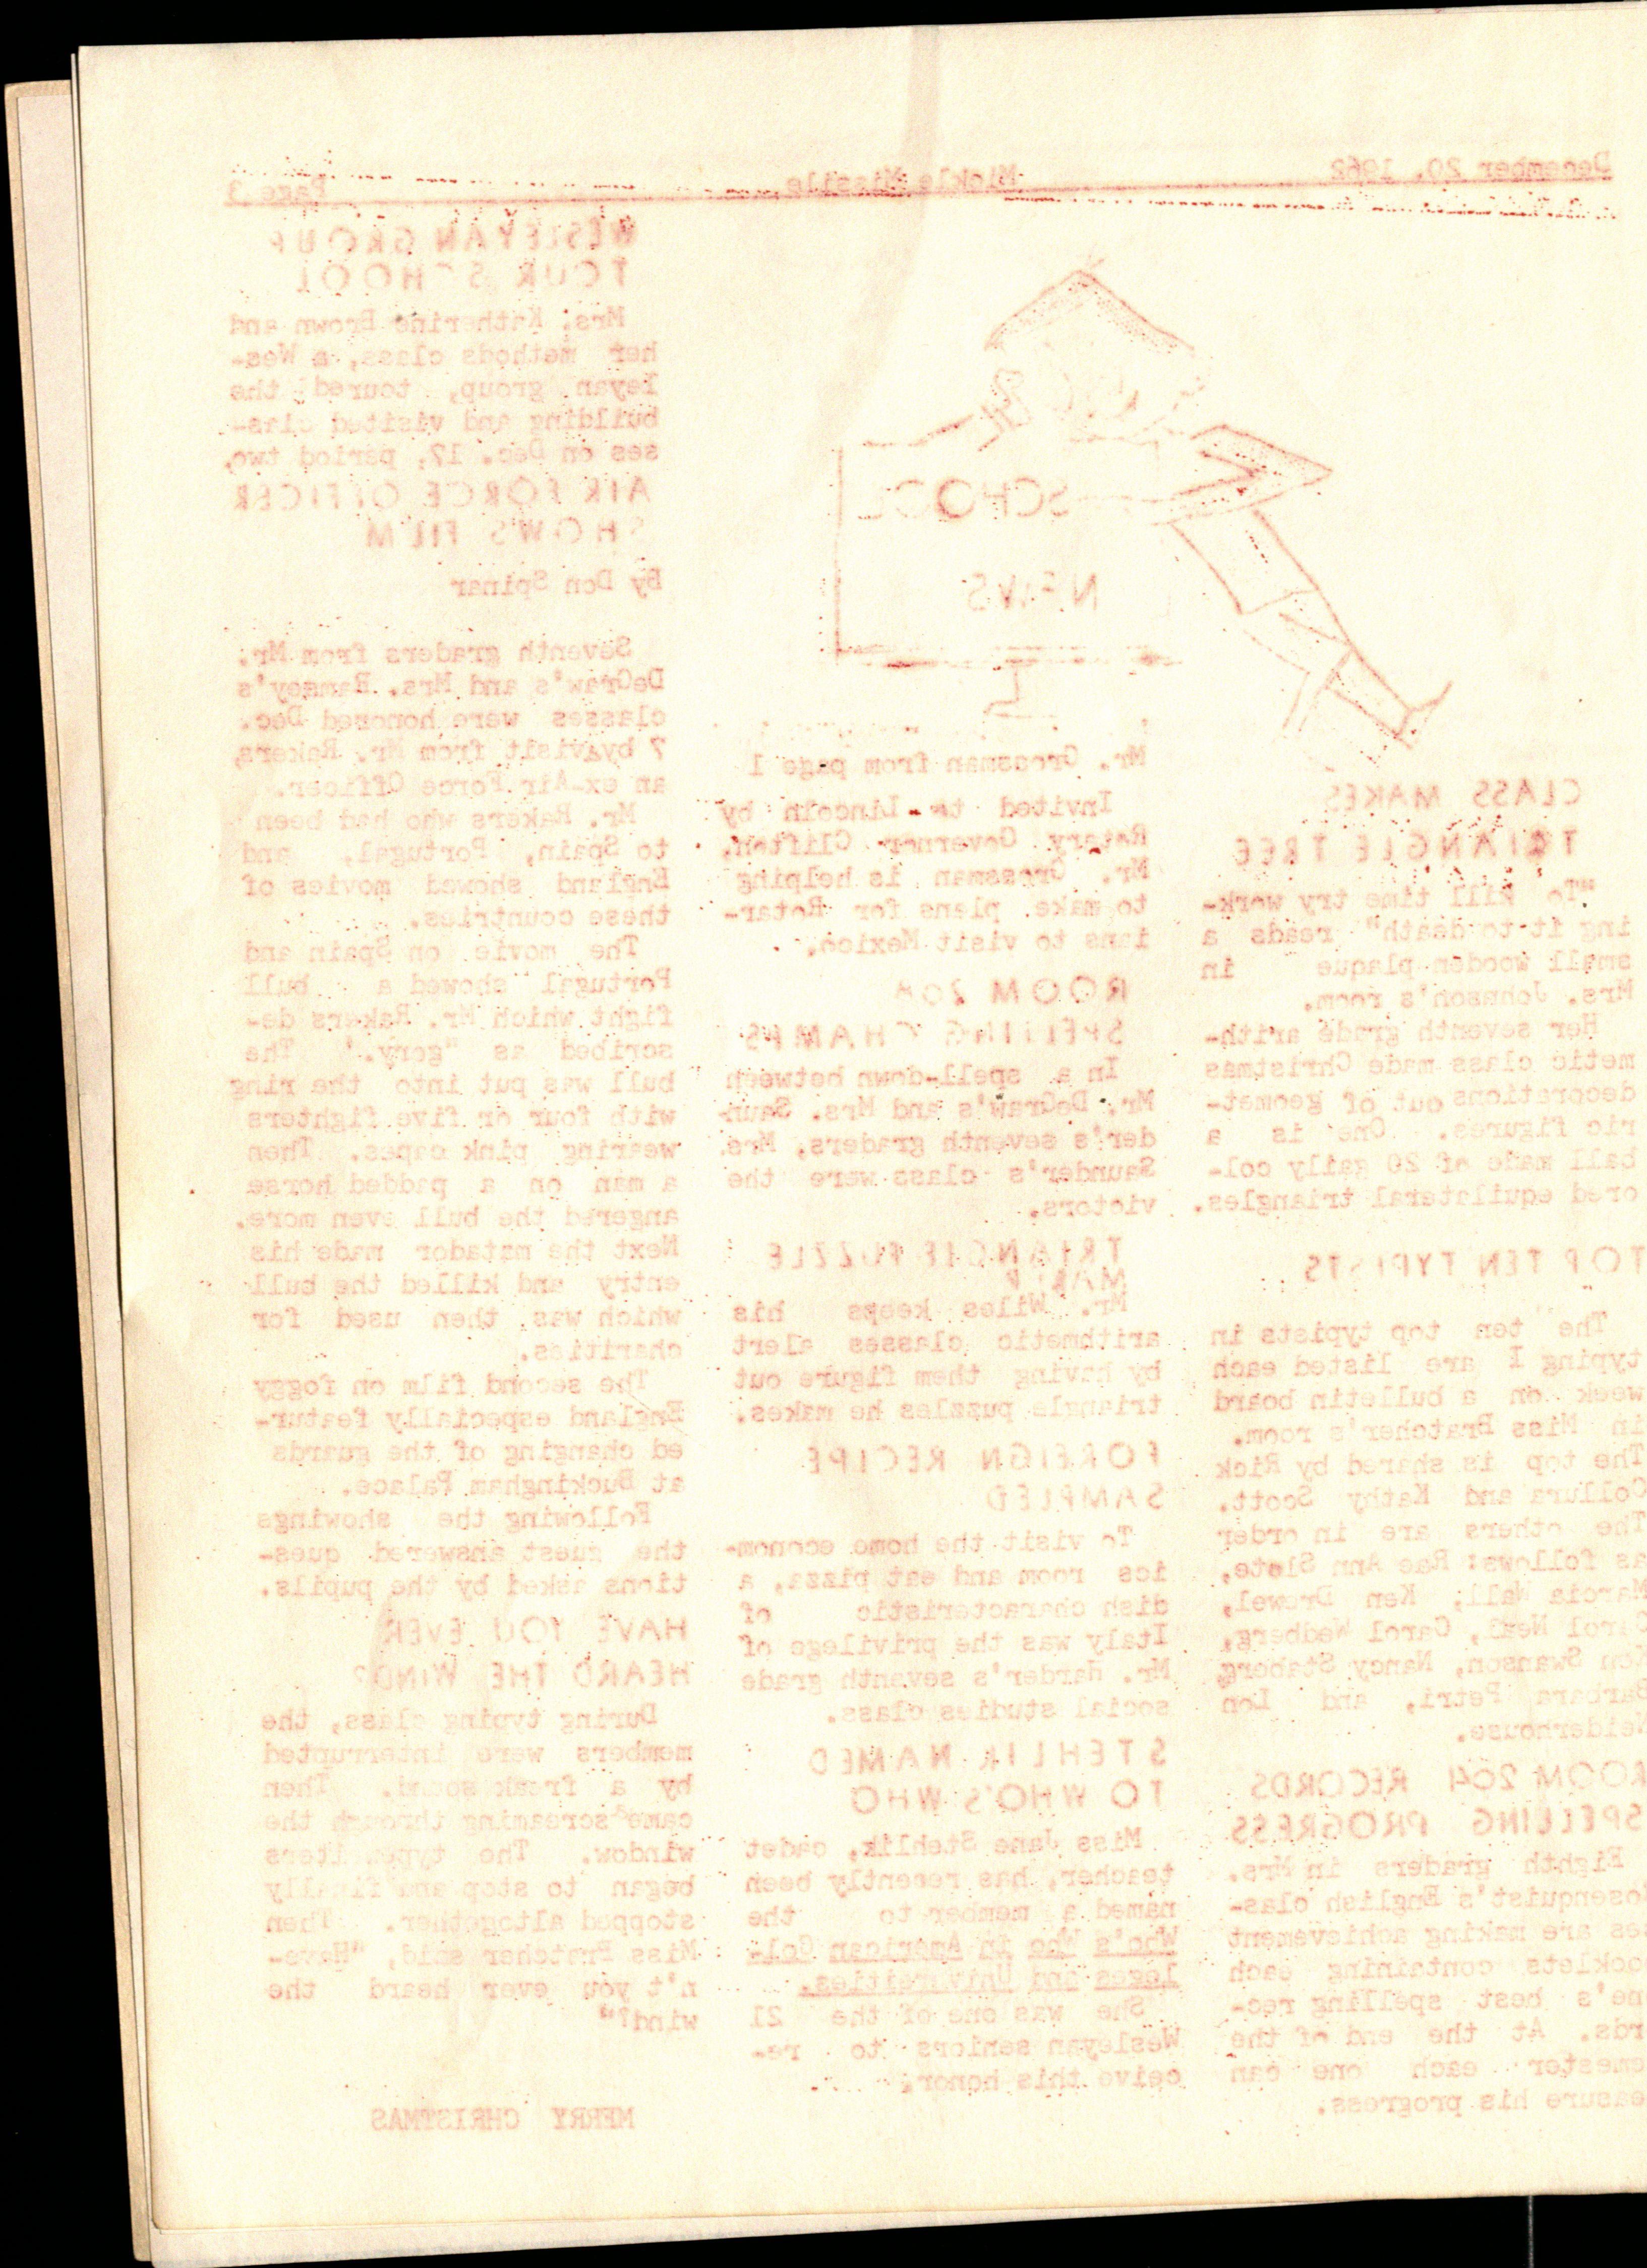 December 20, 1962 Mickle Missile Page 3
SCHOOL
NEWS
CLASS MAKES
TRIANGLE TREE
"To kill time try work-
ing it to death" reads a
small wooden plaque in
Mrs. Johnson's room.
Her seventh grade arith-
metic class made Christmas
decorations out of geomet-
ric figures. One is a
ball made of 20 gaily col-
ored equilateral triangles.
TOP TEN TYPISTS
The ten top typists in
typing I are listed each
week on a bulletin board
in Miss Bratcher's room.
The top is shared by Rick
Collura and Kathy Scott.
The others are in order
as follows: Rae Ann Slote,
Marcia Wall; Ken Drewel,
Carol Carol Wedberg,
Ken Swanson, Nancy Staberg,
Barbara Petri, and Lon
Neiderhouse.
ROOM 204 RECORDS
SPELLING PROGRESS
Eighth graders in Mrs.
Rosenquist's English clas-
ses are making achievement
booklets containing each
one's best spelling rec-
ords. At the end of the
semester each one can
measure his progress.
Mr. Grossman from page 1
Invited to Lincoln by
Rotary Governor Clifton,
Mr. Grossman is helping
to make plans for Rotar-
ians to visit Mexico.
ROOM
SPELLING CHAMPS
In a spell-down between
Mr. DeGraw's and Mrs. Saun-
der's seventh graders, Mrs.
Saunder's class were the
victors.
TRIANGLE PUZZLE
Mr. Wiles keeps his
arithmetic classes alert
by having them figure out
triangle puzzles he makes.
FOREIGN RECIPE
SAMPLED
To visit the home econom-
ics room and eat pizza, a
dish characteristic of
Italy was the privilege of
Mr. Harder's seventh grade
social studies class.
STEHLIK NAMED
TO WHO'S WHO
Miss Jane Stehlik, cadet
teacher, has recently been
named a member to the
Who's Who in American Col-
leges and Universities.
She was one of the 21
Wesleyan seniors to re-
ceive this honor.
WESLEYAN GROUP
TOUR SCHOOL
Mrs. Katherine Brown and
her methods class, a Wes-
leyan group, toured the
building and visited clas-
ses on Dec. 17, period two.
AIR FORCE OFFICER
SHOWS FILM
By Don Spinar
Seventh graders from Mr.
DeGraw's and Mrs. Ramsey's
classes were honored Dec.
7 by a visit from Mr. Rakers,
an ex-Air Force Officer.
Mr. Rakers who had been
to Spain, Portugal, and
England showed movies of
these countries.
The movie on Spain and
Portugal showed a bull
fight which Mr. Rakers de-
scribed as "gory." The
bull was put into the ring
with four or five fighters
wearing pink capes. Then
a man on a padded horse
angered the bull even more.
Next the matador made his
entry and killed the bull
which was then used for
charities.
The second film on foggy
England especially featur-
ed changing of the guards
at Buckingham Palace.
Following the showings
the guest answered ques-
tions asked by the pupils.
HAVE YOU EVER
HEARD THE WIND?
During typing class, the
members were interrupted
by a freak sound. Then
came screaming through the
window. The typewriters
began to stop and finally
stopped altogether. Then
Miss Bratcher said, "Have-
n't you ever heard the
wind?"
MERRY CHRISTMAS